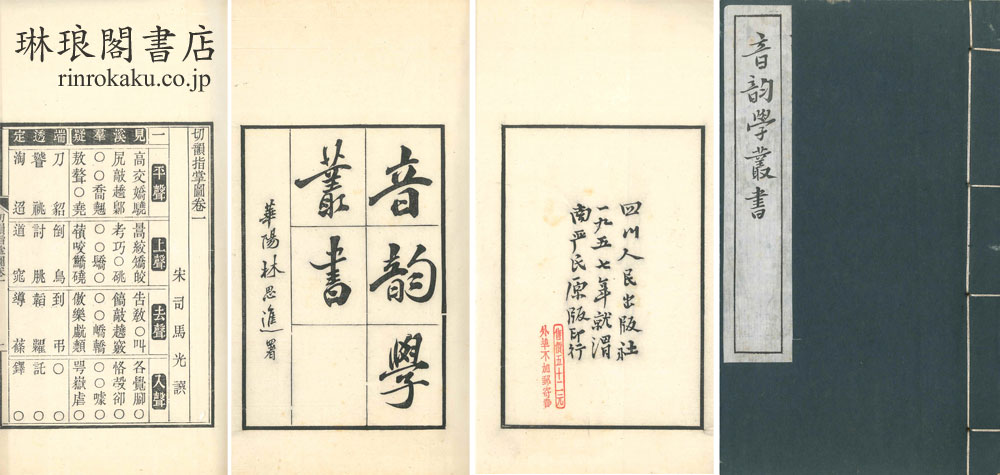 琳琅閣書店
rinrokaku.co.jp
切韻指掌圖卷一
宋司馬光譔
一 平聲 上聲 去聲 入聲
見 高交嬌驍 暠絞矯皎 告教○叫 各覺腳○
溪 尻敲趫鄡 考巧○ 敲趬竅 恪殼卻○
羣 ○○喬翹 ○○○ ○○嶠轎 ○○噱○
疑 敖聱○堯 咬磽 傲樂顤 咢嶽虐○
端 刀貂 倒鳥 到弔 ○
透 祧 討朓 糶 託○
定 淘迢 道窕 導 鐸○
音韵學
叢書
華陽林思進署
四川人民出版社
一九五七年就渭
南严氏原版印行
五十二元
外埠不加郵寄費
音韵學叢書